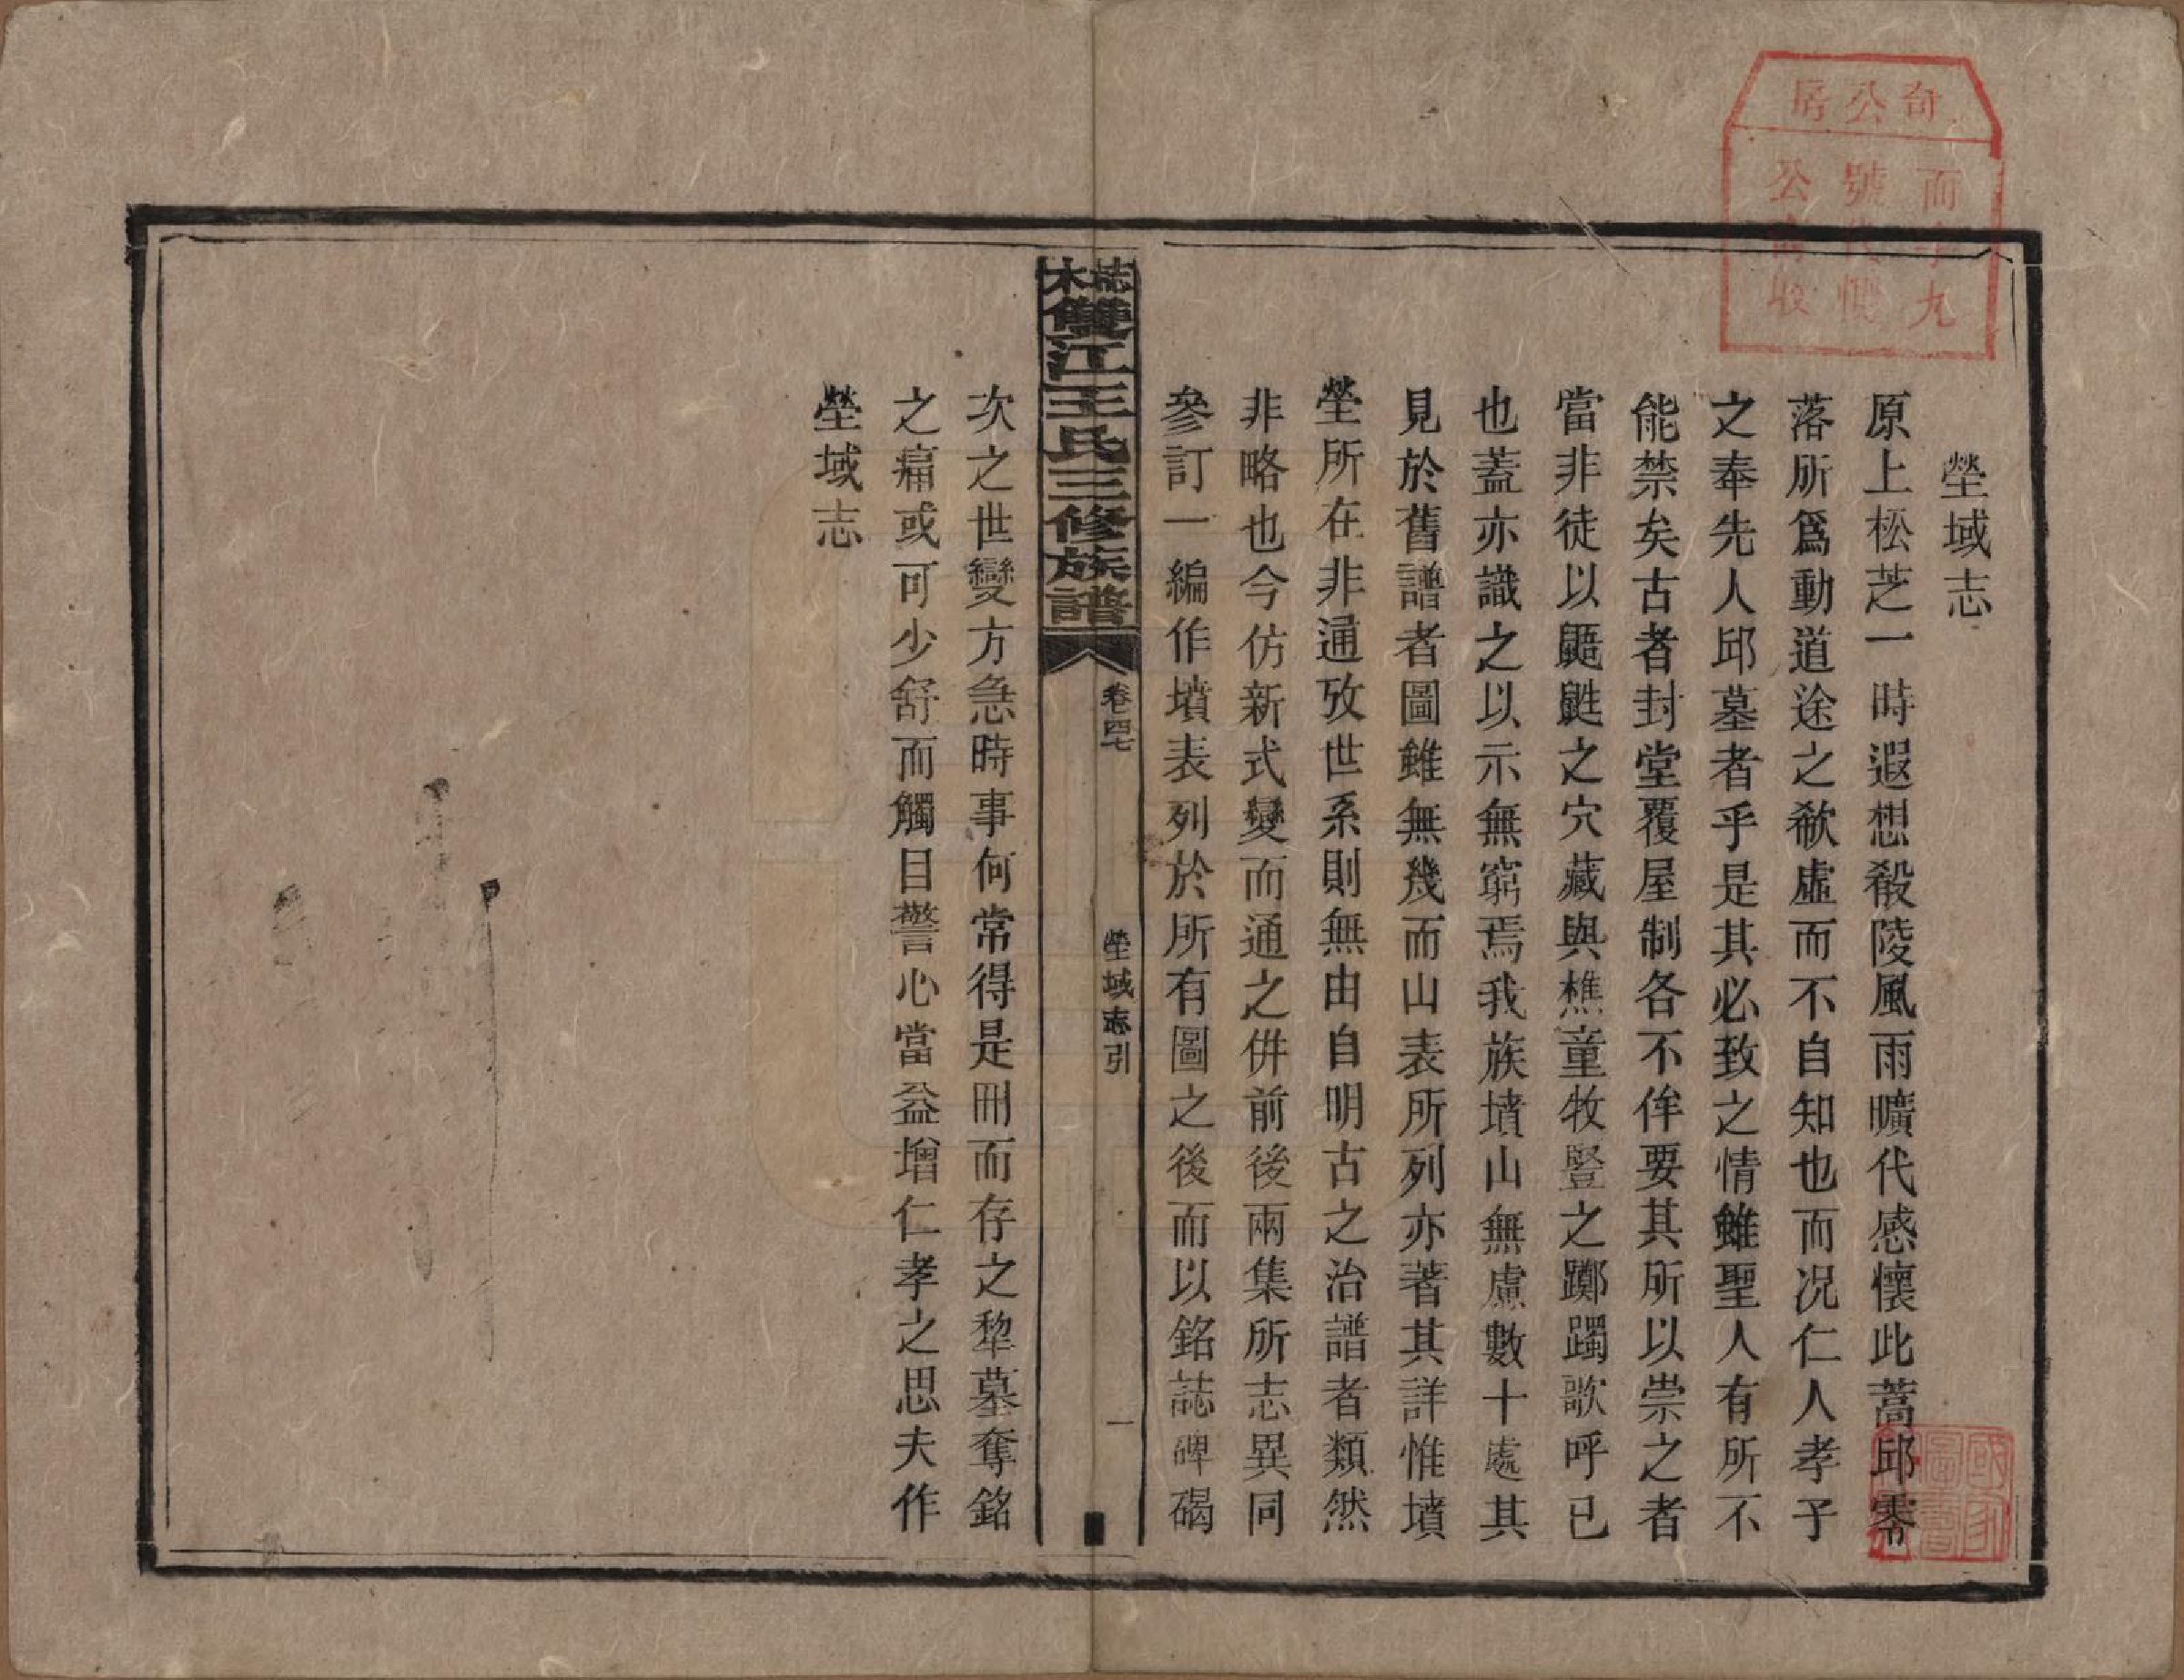 塋域志
原上松芝一時遐想殽陵風雨曠代感懷此蒿邱零
落所爲動道途之欷虛而不自知也而况仁人孝子
之奉先人邱墓者乎是其必致之情雖聖人有所不
能禁矣古者封堂覆屋制各不侔要其所以崇之者
當非徒以鼯鼪之穴藏與樵童牧豎之躑躅歌呼已
也蓋亦識之以示無窮焉我族墳山無慮數十處其
見於舊譜者圖雖無幾而山表所列亦著其詳惟墳
塋所在非通攷世系則無由自明古之治譜者類然
非略也今仿新式變而通之併前後兩集所志異同
參訂一編作墳表列於所有圖之後而以銘誌碑碣
誌木雙江王氏三修族譜
卷四七
塋域志引
一
次之世變方急時事何常得是冊而存之犂墓奪銘
之痛或可少舒而觸目警心當益增仁孝之思夫作
塋域志
奇公房
而字九
號
公收
國家圖書